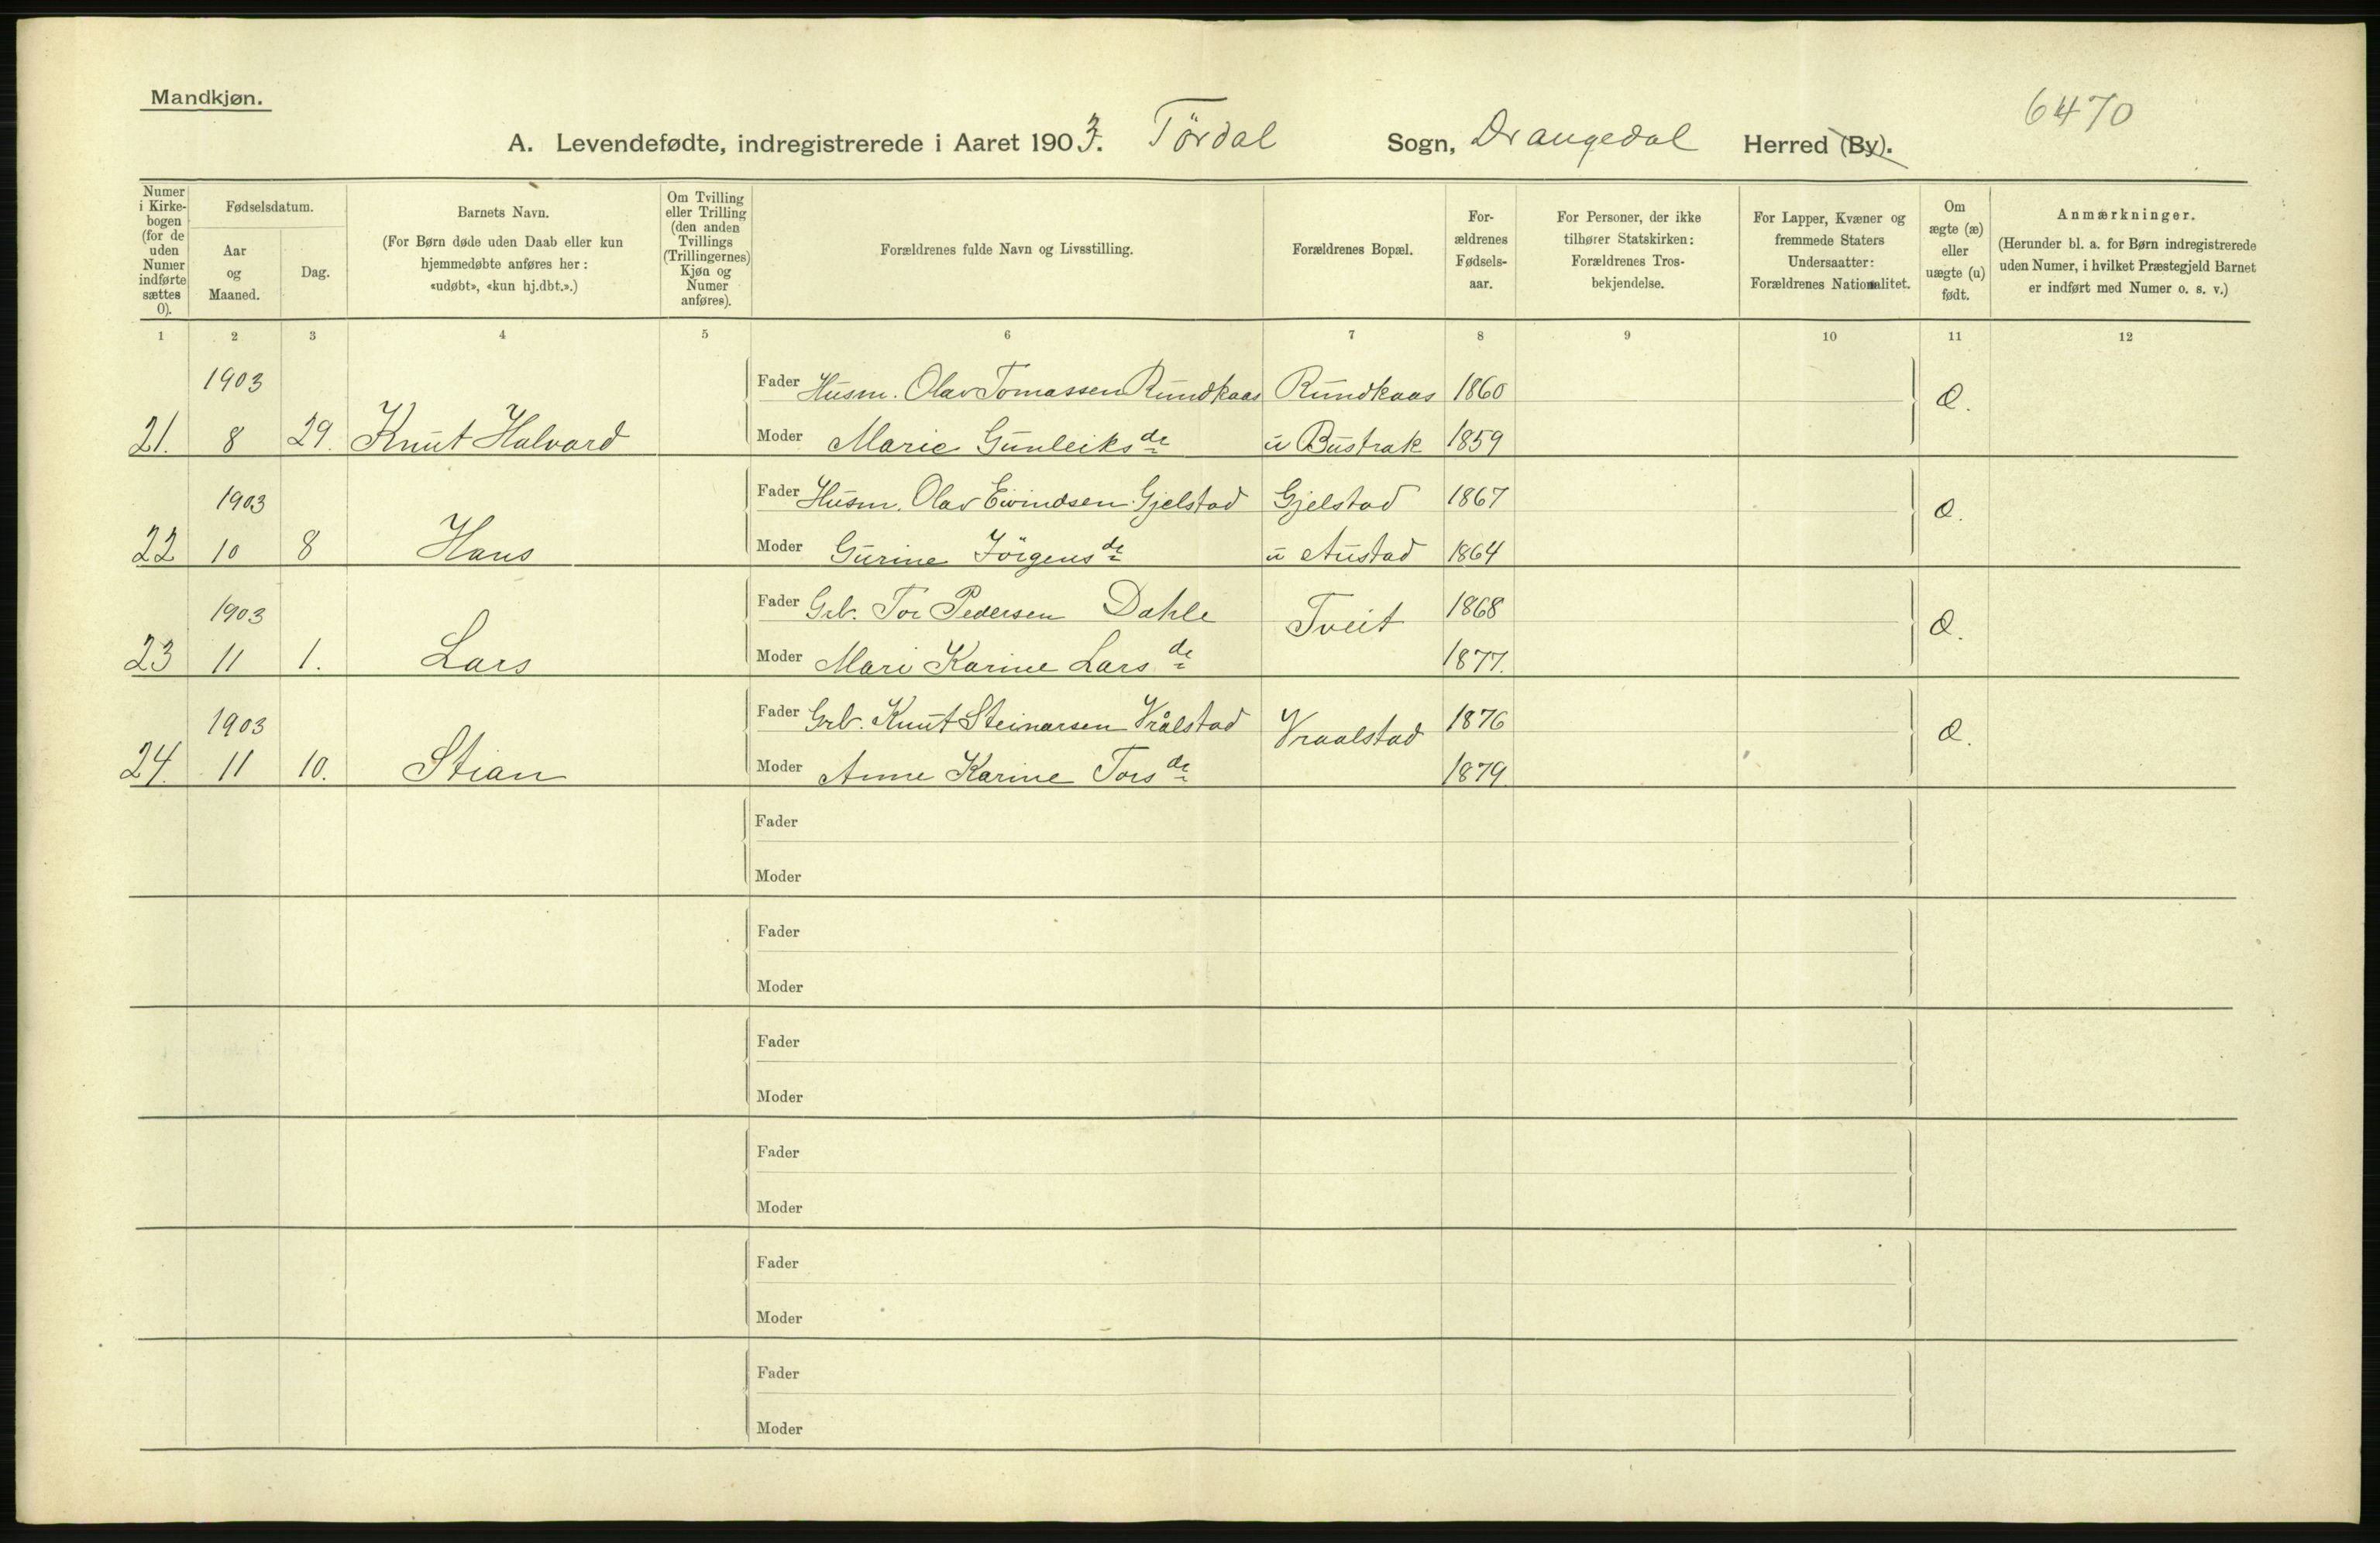 Mandkjøn.
6470
A. Levendefødte, indregistrerede i Aaret 1903. Tördal Sogn, Drangedal Herred (By).
Numer i Kirkebogen (for de uden Numer indførte sættes 0).
Fødselsdatum.
Aar og Maaned.
Dag.
Barnets Navn.
(For Børn døde uden Daab eller kun hjemmedøbte anføres her: «udøbt», «kun hj.dbt.».)
Om Tvilling eller Trilling (den anden Tvillings (Trillingernes) Kjøn og Numer anføres).
Forældrenes fulde Navn og Livsstilling.
Forældrenes Bopæl.
Forældrenes Fødselsaar.
For Personer, der ikke tilhører Statskirken: Forældrenes Trosbekjendelse.
For Lapper, Kvæner og fremmede Staters Undersaatter: Forældrenes Nationalitet.
Om ægte (æ) eller uægte (u) født.
Anmærkninger.
(Herunder bl. a. for Børn indregistrerede uden Numer, i hvilket Præstegjeld Barnet er indført med Numer o. s. v.)
1 2 3 4 5 6 7 8 9 10 11 12
1903 Fader Husm. Olav Tomassen Rundkaas Rundkaas 1860
21. 8 29. Knut Halvard Moder Marie Gunleiksdr u Bustrak 1859
1903 Fader Husm. Olav Eivindsen Gjelstad Gjelstad 1867
22 10 8 Hans Moder Gurine Jörgensdr u Austad 1864
1903 Fader Grb. Tor Pedersen Dahle Tveit 1868
23 11 1. Lars Moder Mari Karine Larsdr 1877.
1903 Fader Grb. Knut Steinarsen Vrålstad Vraalstad 1876
24. 11 10. Stian Moder Anne Karine Torsdr 1879.
Fader
Moder
Fader
Moder
Fader
Moder
Fader
Moder
Fader
Moder
Fader
Moder